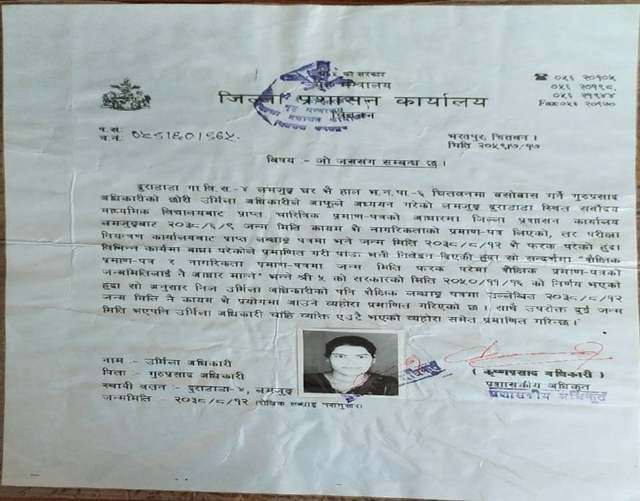 श्री ५ को सरकार
गृह मन्त्रालय
जिल्ला प्रशासन कार्यालय
चितवन
☎ ०५६ २०१०५
०५६ २०११८,
०५६ २११४४
Fax ०५६ २०१७०
प.सं:
च.नं.
भरतपुर, चितवन ।
मिति २०५९/७/१७
विषय:- जो जससंग सम्बन्ध छ ।
दुराडाडा गा.वि.स.-४ लमजुङ घर भै हाल भ.न.पा.-६ चितवनमा बसोबास गर्ने गुरुप्रसाद
अधिकारीको छोरी उर्मिला अधिकारीले आफूले अध्ययन गरेको लमजुङ दुराडाडा स्थित सर्वोदय
माध्यमिक विद्यालयबाट प्राप्त चारित्रिक प्रमाण-पत्रको आधारमा जिल्ला प्रशासन कार्यालय
लमजुङबाट २०३८/६/९ जन्म मिति कायम भै नागरिकताको प्रमाण-पत्र लिएको, तर परीक्षा
नियन्त्रण कार्यालयबाट प्राप्त लब्धाङ्क पत्रमा भने जन्म मिति २०३८/८/१२ भै फरक परेको हुंदा
विभिन्न कार्यमा बाधा परेकोले प्रमाणित गरी पाऊँ भनी निवेदन दिएकी हुंदा सो सन्दर्भमा "शैक्षिक
प्रमाण-पत्र र नागरिकता प्रमाण-पत्रमा जन्म मिति फरक परेमा शैक्षिक प्रमाण-पत्रको
जन्ममितिलाई नै आधार मान्ने" भन्ने श्री ५ को सरकारको मिति २०५०/११/१६ को निर्णय भएको
हुंदा सो अनुसार निज उर्मिला अधिकारीको पनि शैक्षिक लब्धाङ्क पत्रमा उल्लेखित २०३८/८/१२
जन्म मिति नै कायम भै प्रयोगमा आउने व्यहोरा प्रमाणित गरिएको छ । साथै उपरोक्त दुई जन्म
मिति भएपनि उर्मिला अधिकारी चाहि व्यक्ति एउटै भएको व्यहोरा समेत प्रमाणित गरिन्छ ।
नाम - उर्मिला अधिकारी
पिता - गुरुप्रसाद अधिकारी
स्थायी वतन - दुराडाडा-४, लमजुङ
जन्ममिति - २०३८/८/१२ (शैक्षिक लब्धाङ्क पत्रानुसार)
( कृष्णप्रसाद अधिकारी )
प्रशासकीय अधिकृत
प्रशासकीय अधिकृत